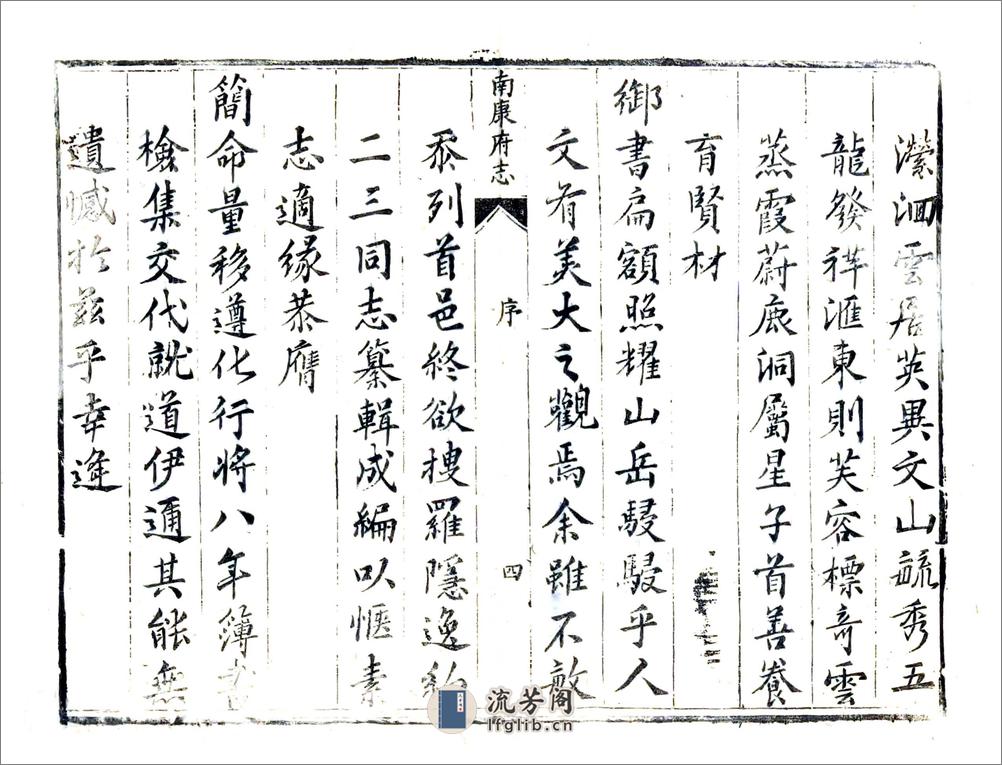 瀠洄雲居英異文山毓秀五
龍發祥滙東則芙容標奇雲
蒸霞蔚鹿洞屬星子首善養
育賢材
御書扁額照耀山岳駸駸乎人
文有美大之觀焉余雖不敏
南康府志
序
四
忝列首邑終欲搜羅隱逸約
二三同志纂輯成編以愜素
志適緣恭膺
簡命量移遵化行將八年簿書
檢集交代就道伊邇其能無
遺憾於茲乎幸逢
流芳阁
lfglib.cn